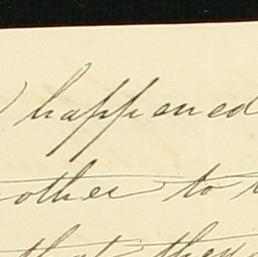 happened
other to
that they